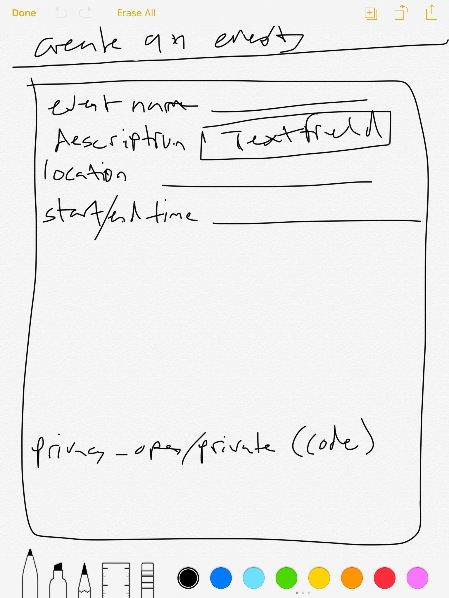 Done Erase All
create an event
event name
Description Textfield
location
start/end time
privacy - open/private (code)